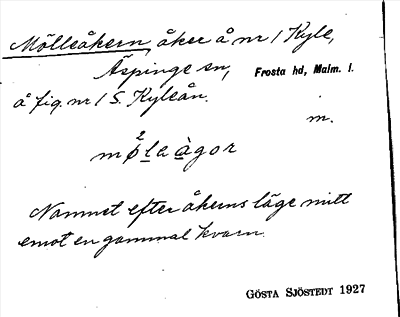 Mölleåkern, åker å nr 1 Kyle,
Äspinge sn, Frosta hd, Malm. l.
å fig. nr 1 S. Kyleån.
m.
2
møle àgor
Namnet efter åkerns läge mitt
emot en gammal kvarn.
GÖSTA SJÖSTEDT 1927